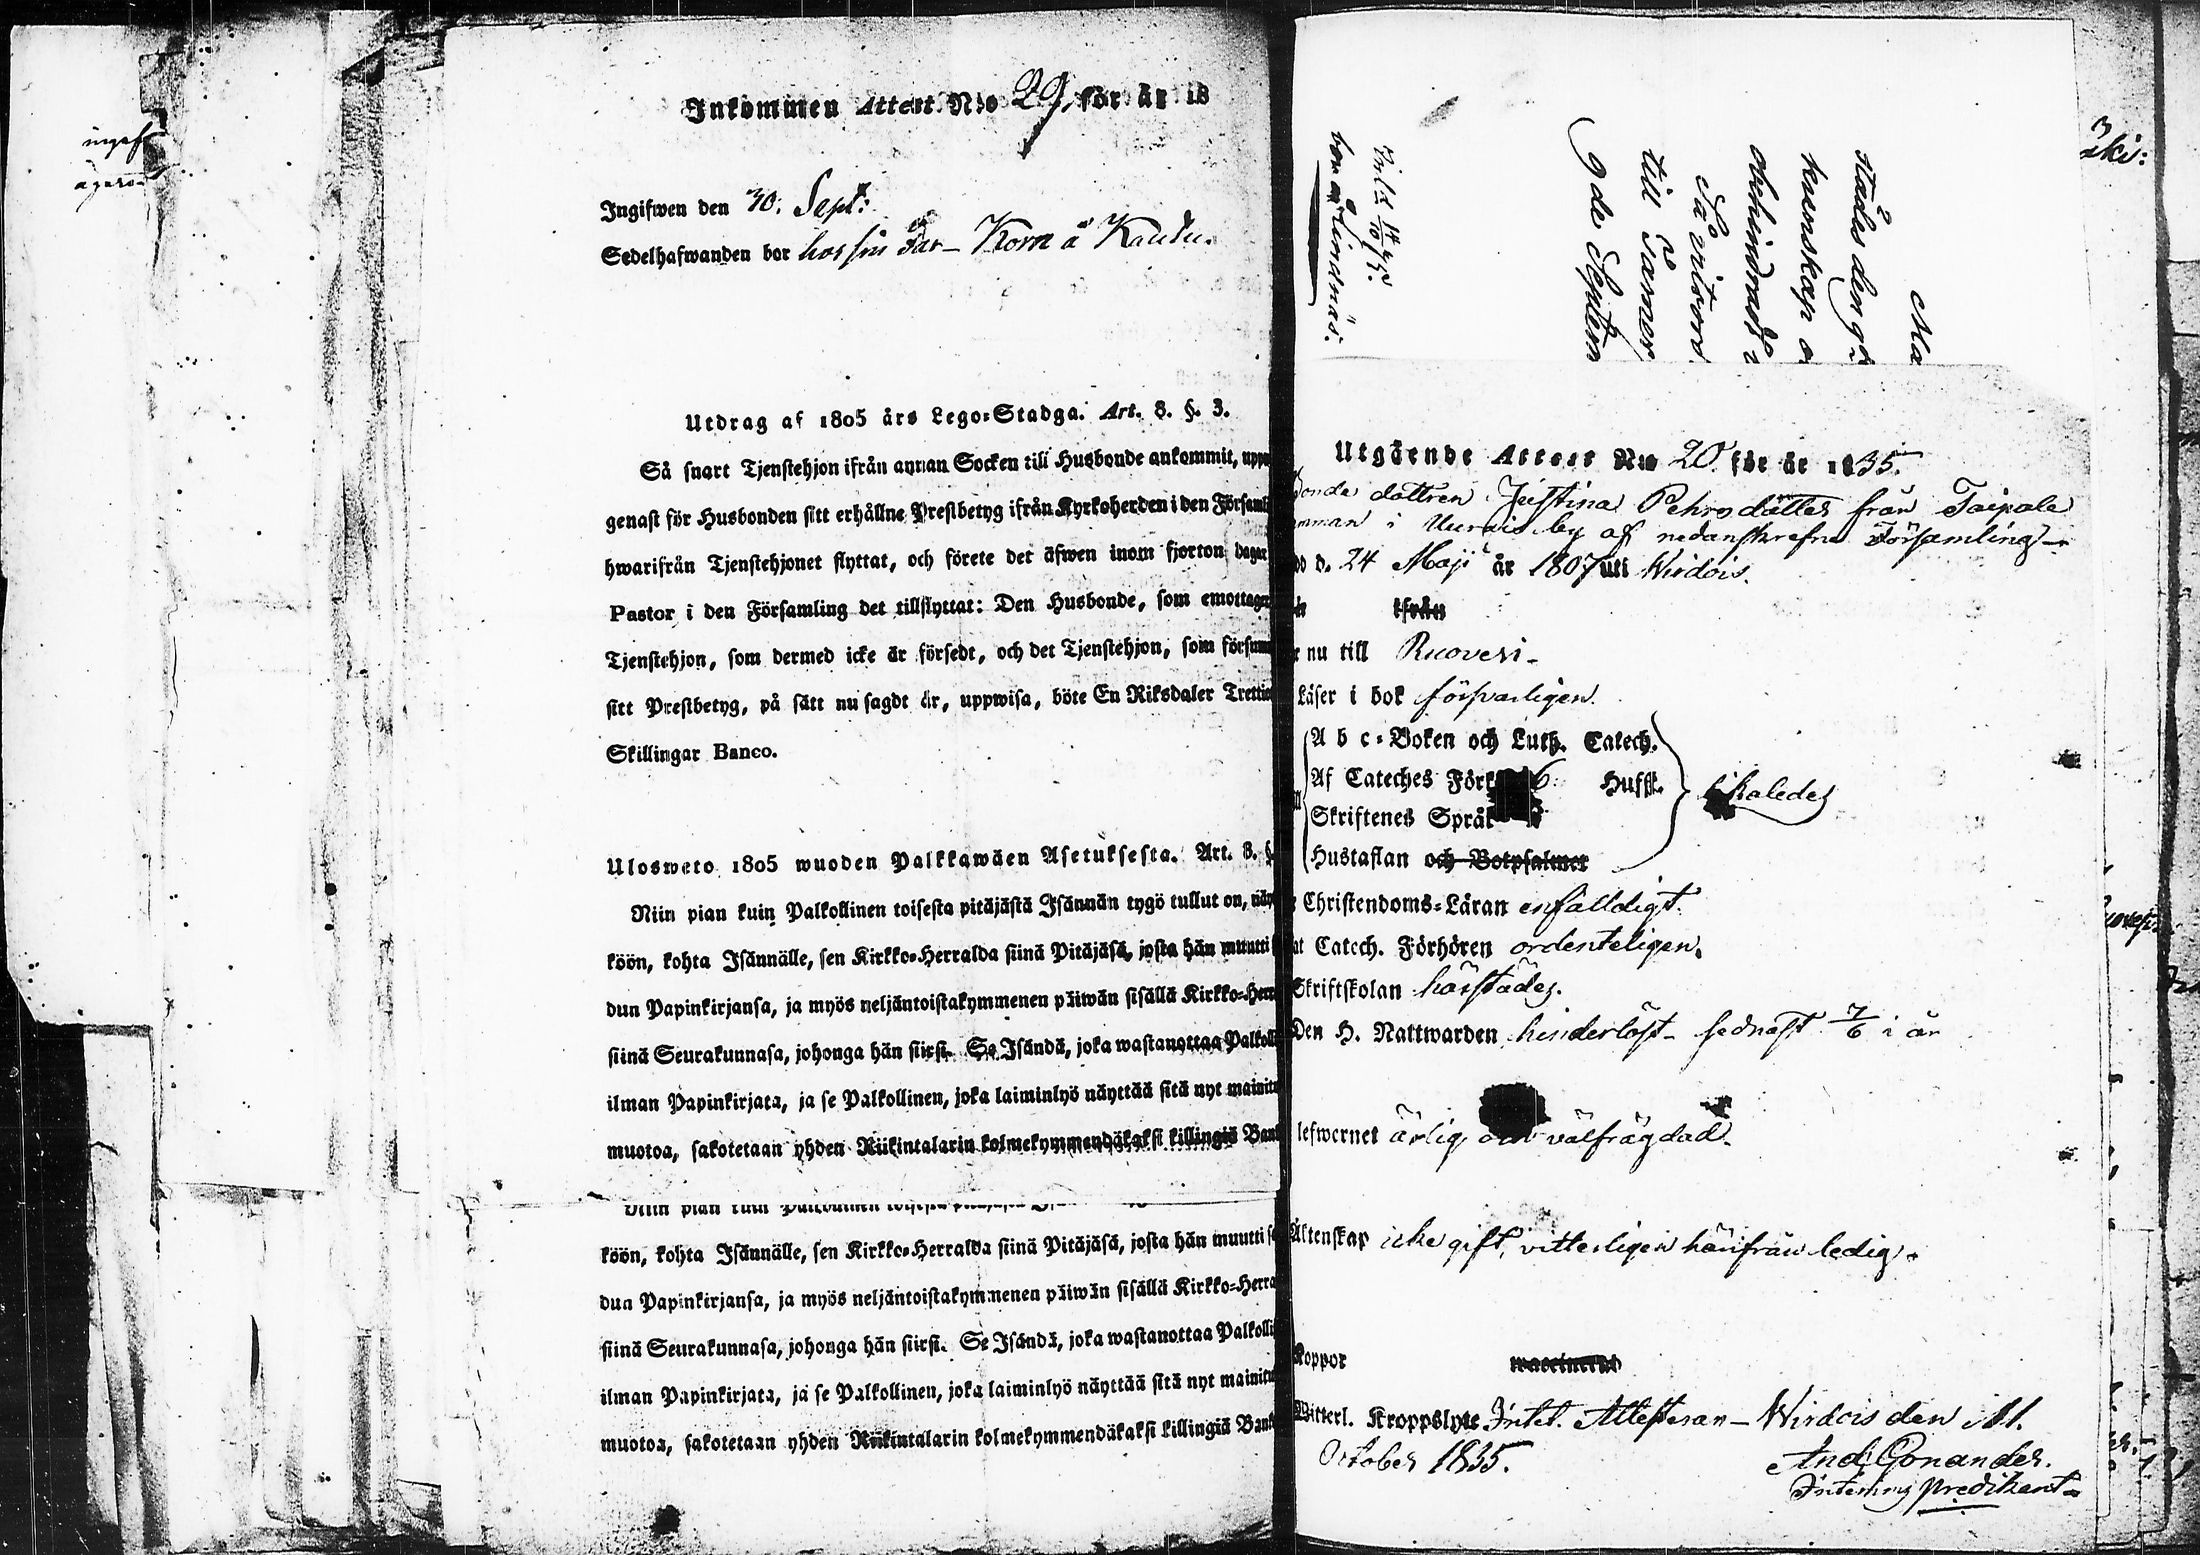 ingaf
Inkommen Attest N:o 29. för år 18
Ingifwen den 30. Sept:
Sedelhafwanden bor hos sin Far – Korn å Kaudu.
Utdrag af 1805 års Lego-Stadga. Art. 8. §. 3.
Så snart Tjenstehjon ifrån annan Socken till Husbonde ankommit, upp
genast för Husbonden sitt erhållne Prestbetyg ifrån Kyrkoherden i den Församl
hwarifrån Tjenstehjonet flyttat, och förete det äfwen inom fjorton dagar
Pastor i den Församling det tillflyttat: Den Husbonde, som emottager
Tjenstehjon, som dermed icke är försedt, och det Tjenstehjon, som försum
sitt Prestbetyg, på sätt nu sagdt är, uppwisa, böte En Riksdaler Trettio
Skillingar Banco.
Ulosweto 1805 wuoden Palkkawäen Asetuksesta. Art. 8. §.
Niin pian kuin Palkollinen toisesta pitäjästä Isännän tygö tullut on, näy
köön, kohta Isännälle, sen Kirkko-Herralda siinä Pitäjäsä, josta hän muutti s
dun Papinkirjansa, ja myös neljäntoistakymmenen päiwän sisällä Kirkko-Herr
siinä Seurakunnasa, johonga hän siirsi. Se Isändä, joka wastanottaa Palkolli
ilman Papinkirjata, ja se Palkollinen, joka laiminlyö näyttää sitä nyt mainitu
muotoa, sakotetaan yhden Riikintalarin kolmekymmendäkaksi killingiä Bank
Niin pian kuin Palkollinen toisesta pitäjästä
köön, kohta Isännälle, sen Kirkko-Herralda siinä Pitäjäsä, josta hän muutti s
dun Papinkirjansa, ja myös neljäntoistakymmenen päiwän sisällä Kirkko-Herra
siinä Seurakunnasa, johonga hän siirsi. Se Isändä, joka wastanottaa Palkolli
ilman Papinkirjata, ja se Palkollinen, joka laiminlyö näyttää sitä nyt mainitu
muotoa, sakotetaan yhden Riikintalarin kolmekymmendäkaksi killingiä Bank
Ma
städes den
kunskap o
obehindrad
Så vitsord
till Tamer
9 de Septem
bor å Lindnäs:
Utgående Attest N:o 20. för år 1835.
Bonde dottren Justina Pehrsdotter från Taipale
hemman i Uurais by af nedanskrefne Församling –
dd d. 24 Maji år 1807 uti Wirdois.
ifrån
r nu till Ruovesi –
Läser i bok försvarligen.
A b c-Boken och Luth. Catech.
Af Cateches Förk 6. Hufst.
Skriftenes Språk
Hustaflan och Botpsalmer
likaledes
Christendoms-Läran enfaldigt.
at Catech. Förhören ordenteligen.
Skriftskolan härstädes.
Den H. Nattwarden hinderlöst – sednast 7/6 i år
lefwernet ärlig och välfrägdad.
Äktenskap icke gift, vitterligen härifrån ledig.
Koppor waccinerad
Witterl. Kroppslyte Intet. Attesteran – Wirdois den 11.
October 1835.
And. Gonander.
Interims predikant –